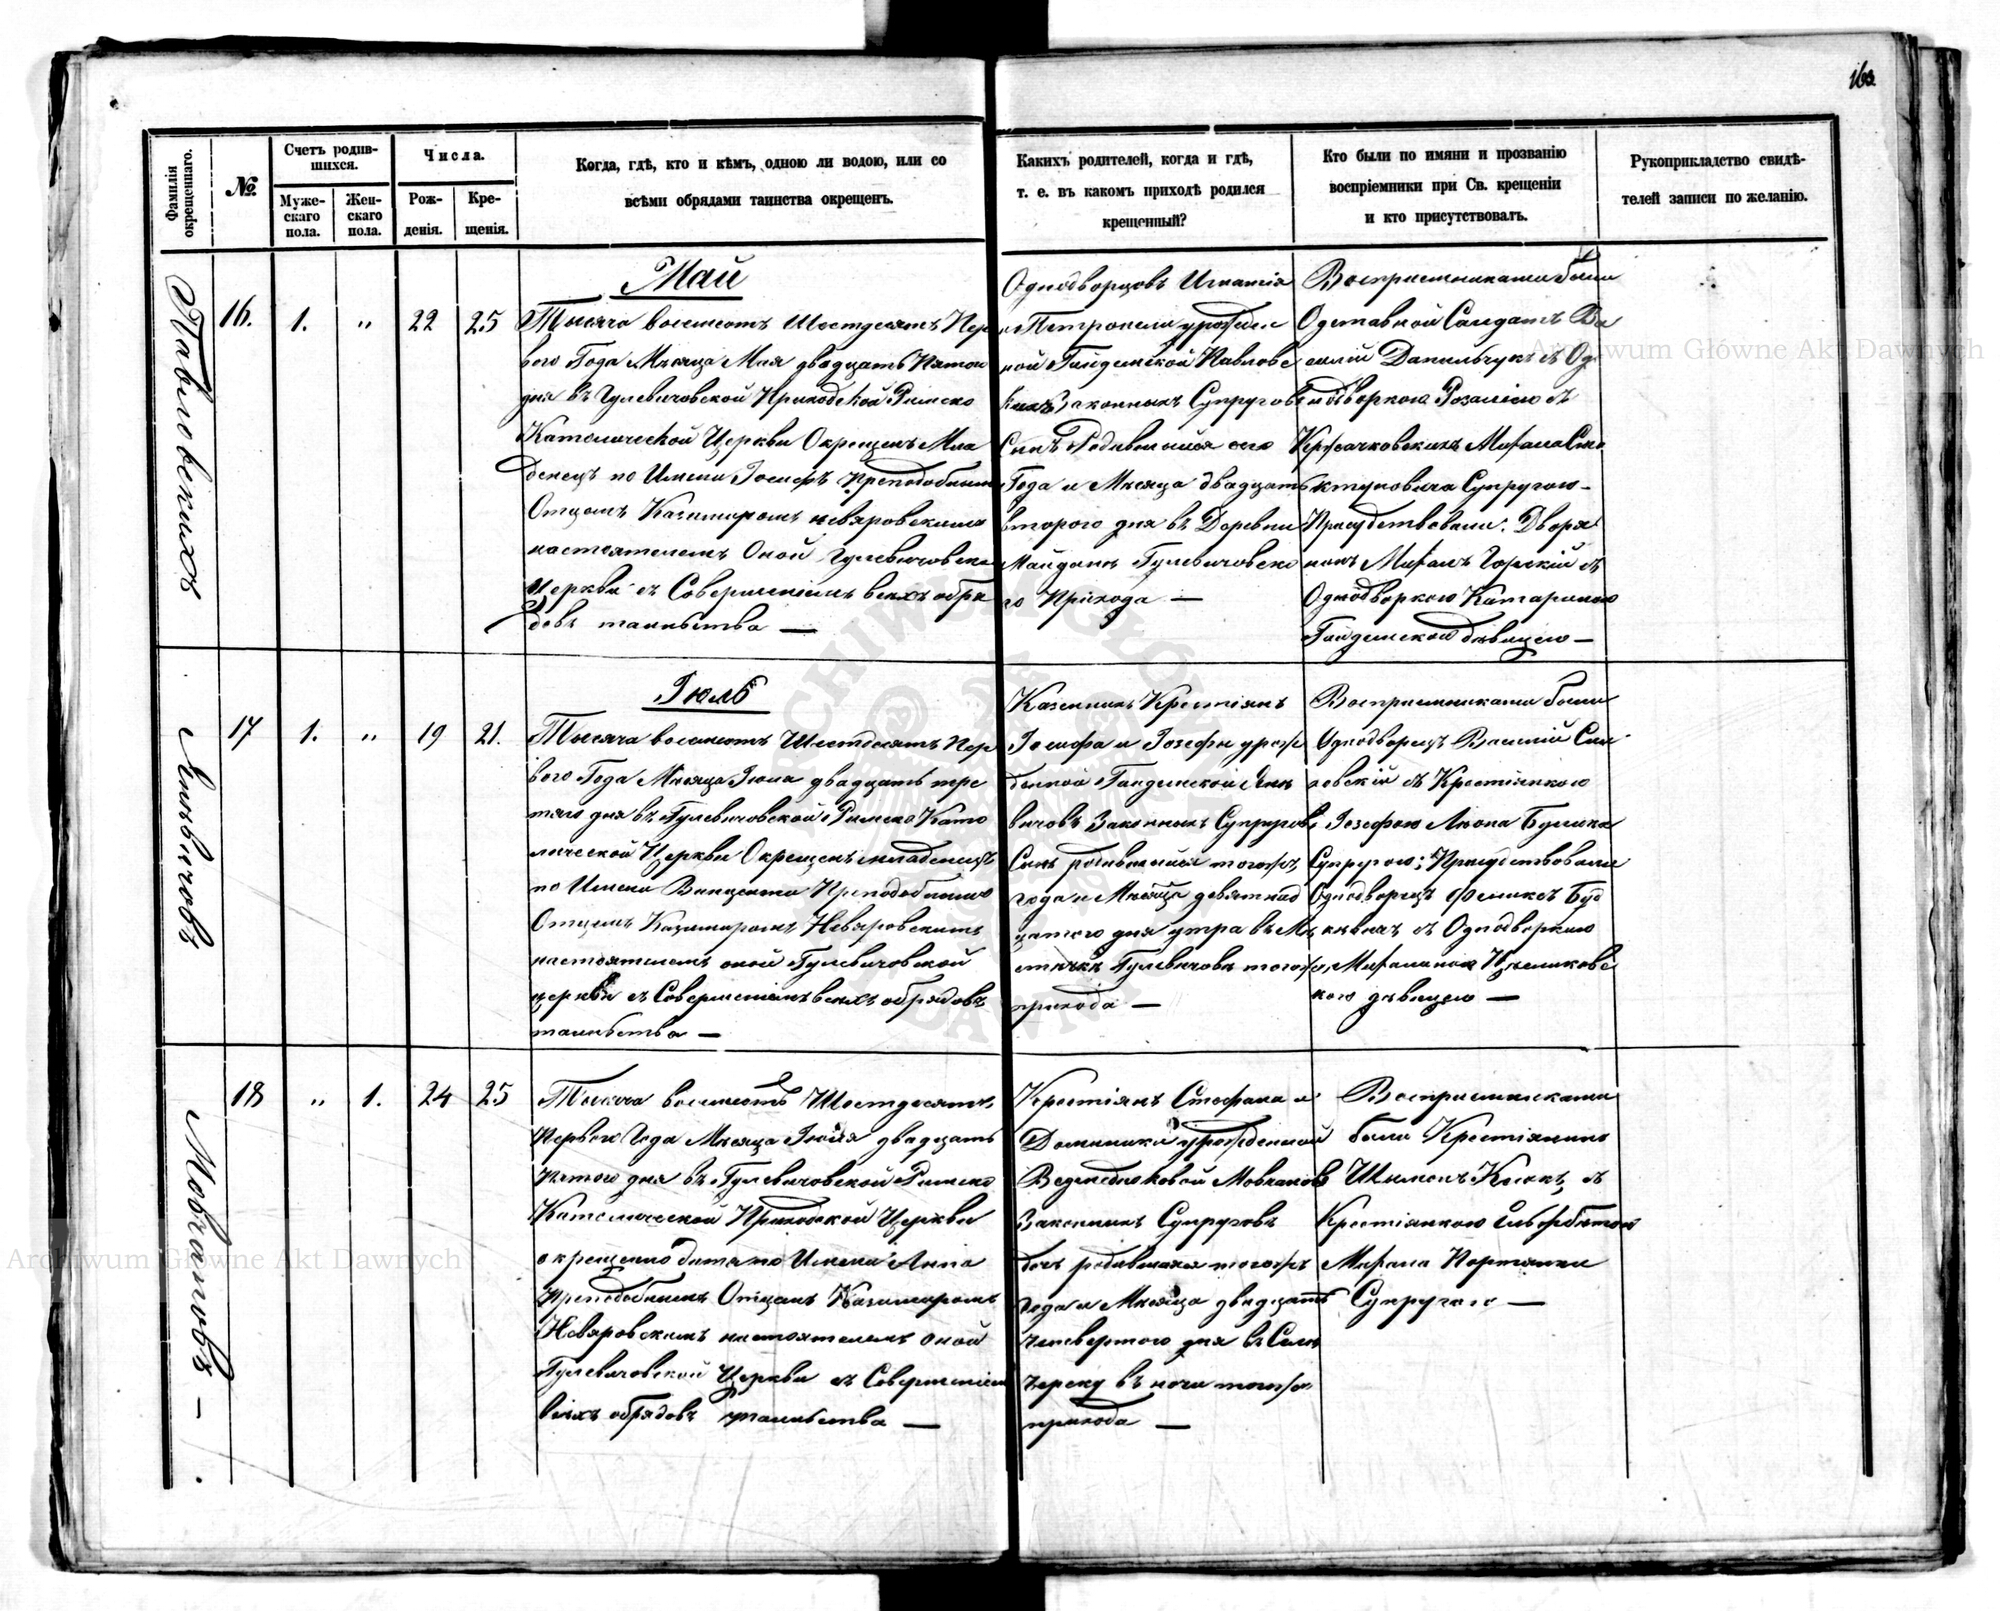 163
Фамилія окрещеннаго.
№
Счетъ родив-
шихся.
Муже-
скаго
пола.
Жен-
скаго
пола.
Числа.
Рож-
денія.
Кре-
щенія.
Когда, гдѣ, кто и кѣмъ, одною ли водою, или со
всѣми обрядами таинства окрещенъ.
Какихъ родителей, когда и гдѣ,
т. е. въ какомъ приходѣ родился
крещенный?
Кто были по имяни и прозванію
воспріемники при Св. крещеніи
и кто присутствовалъ.
Рукоприкладство свидѣ-
телей записи по желанію.
Павловскихъ
16.
1.
„
22
25
Май
Тысяча восемсотъ Шестдесятъ Пер
вого Года Мѣсяца Мая двадцать Пятои
дня въ Гулевичовской Приходской Римско
Католической Церкви Окрещенъ Мла
денецъ по Имени Іосифъ Преподобным
Отцемъ Казимиромъ Невяровскимъ
настоятелемъ Оной Гулевичовско
Церкви съ Совершеніемъ всѣхъ обря
довъ таинъства —
Однодворцовъ Игнатія
и Петронели урожден
ной Гайдемской Павловс
кихъ Законныхъ Супруговъ
Сынъ Родившийся сего
Года и Мѣсяца двадцать
второго дня въ Деревни
Майданъ Гулевичовско
го Прихода —
Воспрiемниками были
Отставной Салдатъ Ва
силій Данильчукъ съ Од
нодворкою Розаліею
Михала
Супругою —
Присудствовали: Дворя
нинъ Михалъ Горскій съ
Однодворкою Катариною
Гайдемскою дѣвицею —
17
1.
„
19
21.
Іюль
Тысяча восемсотъ Шестдесятъ Пер
вого Года Мѣсяца Іюля двадцать тре
тяго дня въ Гулевичовской Римско Като
лической Церкви Окрещенъ младенецъ
по Имени Винцентій Преподобнымъ
Отцемъ Казимиромъ Невяровскимъ
настоятелемъ оной Гулевичовской
церкви съ Совершеніемъ всѣхъ обрядовъ
таинъства —
Казенныхъ Крестіянъ
Іосифа и Іозефы урож
денной Гайдемской
вичовъ Законныхъ Супруговъ
Сынъ родившийся тогожъ
года и Мѣсяца девятнад
цатого дня утра въ Мѣ
стечкѣ Гулевичовкъ тогожъ
прихода —
Воспрiемниками были
Однодворецъ Василій
съ Крестіянкою
Іозефою Лѣона
Супругою; Присудствовали
Однодворецъ Феликсъ
съ Однодворкою
Михалиною
кою дѣвицею —
Мовчановъ —
18
„
1.
24
25
Тысяча восемсотъ Шестдесятъ
Первого Года Мѣсяца Іюля двадцать
пятого дня въ Гулевичовской Римско
Католической Приходской Церкви
окрещено дитя по Имени Анна
Преподобнымъ Отцемъ Казимиромъ
Невяровскимъ настоятелемъ оной
Гулевичовской Церкви съ Совершеніем
всѣхъ обрядовъ таинъства —
Крестіянъ Стефана и
Доминики урожденной
Мовчановъ
Законныхъ Супруговъ
дочь родившаяся тогожъ
года и Мѣсяца двадцать
четвертого дня въ Селѣ
Череку въ ночи тогожъ
прихода —
Воспрiемниками
были Крестіянинъ
Шимонъ съ
Крестіянкою Ельжбѣтою
Михала
Супругою —
Archiwum Główne Akt Dawnych
Archiwum Główne Akt Dawnych